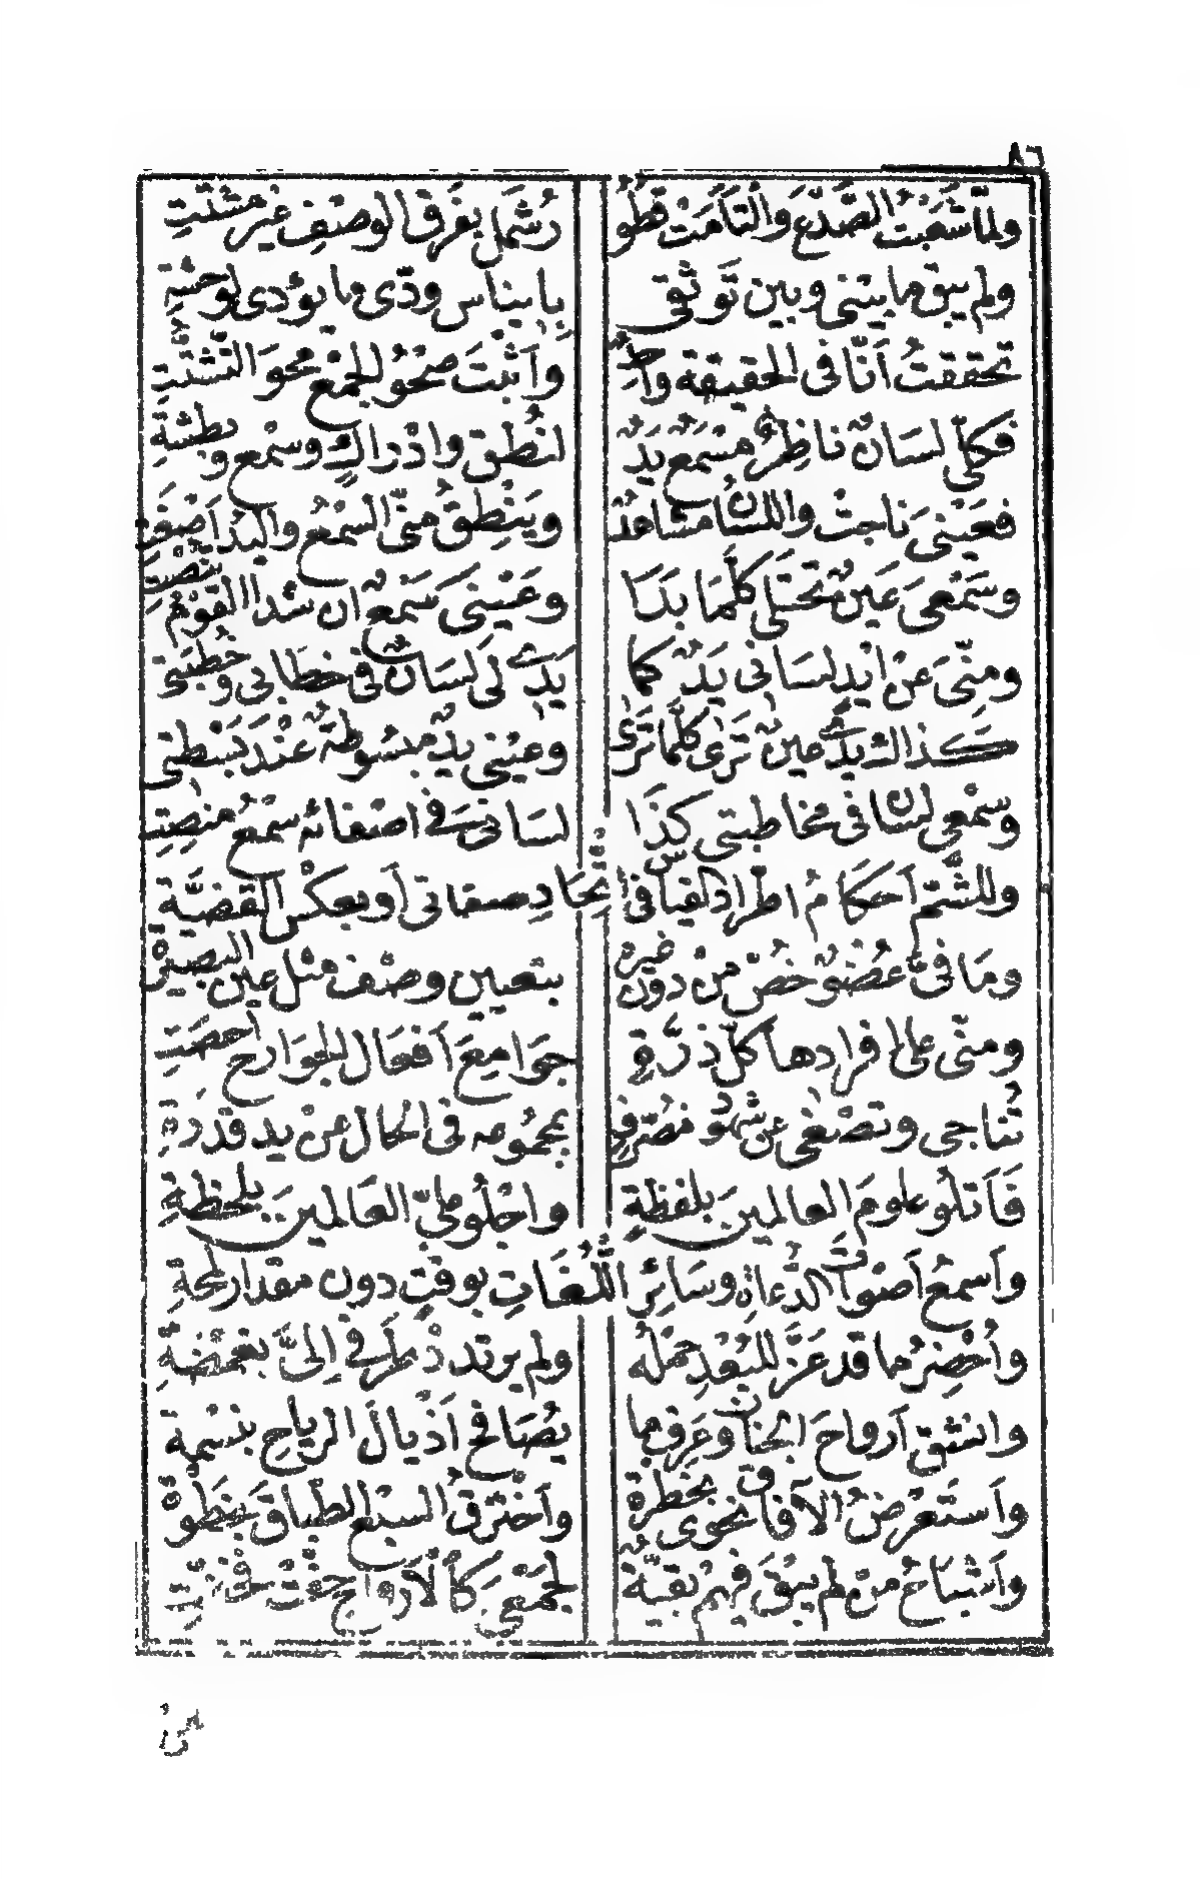 ٨٦
ولمَّا شعَبتُ الصَّدعَ والتَأمَتْ قطو رُشمل بفرق الوصف غير مشتتِ
ولم يبق ما بيني وبين تَوَثّقي بايناس ودّي ما يؤدي لوحشةِ
تحققتُ أنّا في الحقيقة واحدٌ وأثبتَ صَحوُ الجمْع محوَ التَّشتتِ
فكلّي لسَانٌ ناظرٌ مسْمعٌ يَدٌ لنُطق وادْراكٍ وسمْع وبطشةِ
فعَيْنيَ ناجتْ واللسَانُ مشاهدٌ ويَنْطِقُ منّي السّمْعُ واليدُ أصْغَتِ
وسَمْعيَ عَينٌ تَجتَلي كلَّمَا بَدَا وعَيْني سَمْعٌ ان شدا القَوْمُ تنصت
ومنّيَ عَنْ ايدٍ لسَاني يَدٌ كما يَدي لي لسَانٌ في خطَابي وخُطبَتي
كذاك يدي عينٌ تَرَى كلَّما تَرَى وعيْني يدٌ مبسُوطةٌ عنْدَ بَسْطتي
وسمْعي لسَانٌ في مخاطبتي كذَا لسَاني في اصْغائه سَمعُ منصِتِ
وللشَّمّ أحكامُ اطّراد القياس في اتّحادِ صفاتي أو بعكس القضيَّةِ
ومَا فيَّ عُضْوٌ خُصَّ منْ دون غيره بتعيين وصْف مثل عين البَصيرَةِ
ومنّي على افرادها كلّ ذرَّةٍ جوَامعَ أفعَال الجوَارح أحصَتِ
تُنَاجي وتصْغي عن شهود مُصرّفٍ بمجموعه في الحال عنْ يد قدْرَةِ
فَأَتلُو علومَ العالمينَ بلفظةٍ وأجْلُو عليّ العَالمينَ بلحظةِ
وأسمعُ أصْواتَ الدُّعاةِ وسَائرِ اللُّغَاتِ بوقتٍ دون مقدار لمحةِ
وأُحْضِرُ ما قد عَزَّ للبُعْدِ حَمْلُه ولم يرتدد طَرْفي إليَّ بغمْضَةِ
وانشق أروَاحَ الجنَانِ وعَرفَ ما يُصَافحُ أذْيَالَ الرياحِ بنسْمةِ
وأستَعْرضُ الآفاق نحوي بخَطرةٍ وأخترقُ السبْعَ الطّبَاقَ بخَطْوةِ
وأشْبَاحُ منْ لم يبْقَ فيهمْ بقيّةٌ لجمْعي كالأرواح خفّت